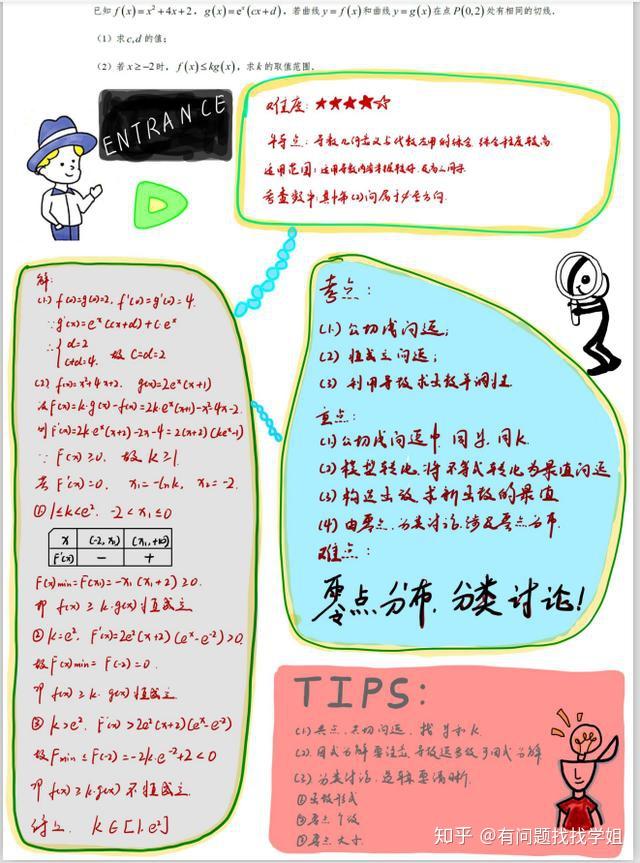 已知 f(x)=x²+4x+2, g(x)=eˣ(cx+d), 若曲线 y=f(x) 和曲线 y=g(x) 在点 P(0,2) 处有相同的切线.
(1) 求 c,d 的值;
(2) 若 x≥-2 时, f(x)≤kg(x), 求 k 的取值范围.
ENTRANCE
难度: ★★★★☆
解:
(1) f(0)=g(0)=2, f'(0)=g'(0)=4.
∵g'(x)=eˣ(cx+d)+c·eˣ
∴{d=2
c+d=4. 故 c=d=2
(2) f(x)=x²+4x+2. g(x)=2eˣ(x+1)
设F(x)=k·g(x)-f(x)=2k·eˣ(x+1)-x²-4x-2.
则F'(x)=2k·eˣ(x+2)-2x-4=2(x+2)(keˣ-1)
∵ F(x)≥0. 故 k≥1.
若 F'(x)=0, x₁=-lnk, x₂=-2.
① 1≤k<e². -2<x₁≤0
x (-2,x₁) (x₁,+∞)
F'(x) - +
F(x)min=F(x₁)=-x₁(x₁+2)≥0.
即 f(x)≤k·g(x)恒成立
② k=e², F'(x)=2e²(x+2)(eˣ-e⁻²)>0.
故F(x)min=F(-2)=0.
即 f(x)≤k·g(x)恒成立
③ k>e², F'(x)>2e²(x+2)(eˣ-e⁻²)
故Fmin≤F(-2)=-2k·e⁻²+2<0
即 f(x)≤k·g(x) 不恒成立.
综上. k∈[1,e²]
考点:
(1) 公切线问题;
(2) 恒成立问题;
(3) 利用导数求函数单调性.
重点:
(1) 公切线问题中 同点, 同k.
(2) 模型转化. 将不等式转化为最值问题
(3) 构造函数. 求新函数的最值
(4) 由零点. 分类讨论. 涉及零点分布.
难点:
零点分布. 分类讨论!
TIPS:
(1) 共点. 共切问题. 找点和k.
(3) 分类讨论. 逻辑要清晰.
① 函数形式
② 零点个数
③ 零点大小
知乎 @有问题找找学姐